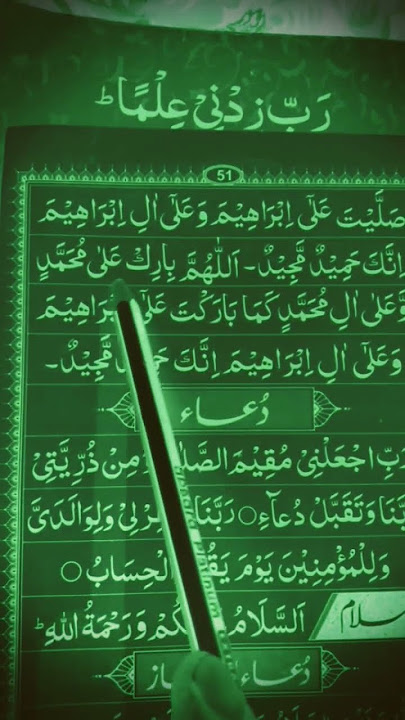 رَبِّ زِدْنِىْ عِلْمًا ط
51
صَلَّيْتَ عَلٰٓى اِبْرَاهِيْمَ وَعَلٰٓى اٰلِ اِبْرَاهِيْمَ
اِنَّكَ حَمِيْدٌ مَّجِيْدٌ۔ اَللّٰهُمَّ بَارِكْ عَلٰى مُحَمَّدٍ
وَّعَلٰٓى اٰلِ مُحَمَّدٍ كَمَا بَارَكْتَ عَلٰٓى اِبْرَاهِيْمَ
وَعَلٰٓى اٰلِ اِبْرَاهِيْمَ اِنَّكَ مَّجِيْدٌ۔
دُعَاء
رَبِّ اجْعَلْنِىْ مُقِيْمَ مِنْ ذُرِّيَّتِىْ
رَبَّنَا وَتَقَبَّلْ دُعَآءِ○ رَبَّنَا وَلِوَالِدَىَّ
وَلِلْمُؤْمِنِيْنَ يَوْمَ الْحِسَابُ○
سلام
اَلسَّلَامُ وَرَحْمَةُ اللّٰهِ ط
دُعاء